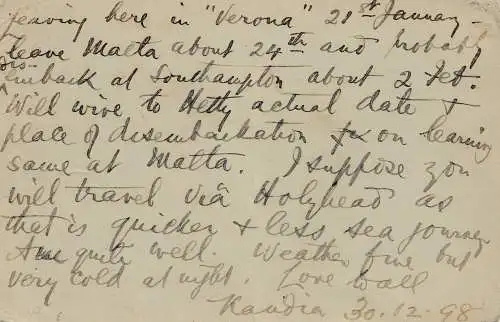 leaving here in "Verona" 21st January -
leave Malta about 24th and probably
disembark at Southampton about 2 Feb.
Will wire to Hetty actual date &
place of disembarkation &c on learning
same at Malta. I suppose you
will travel viâ Holyhead as
that is quicker & less sea journey
Am quite well. Weather fine but
very cold at night. Love to all
Kandia 30.12.98